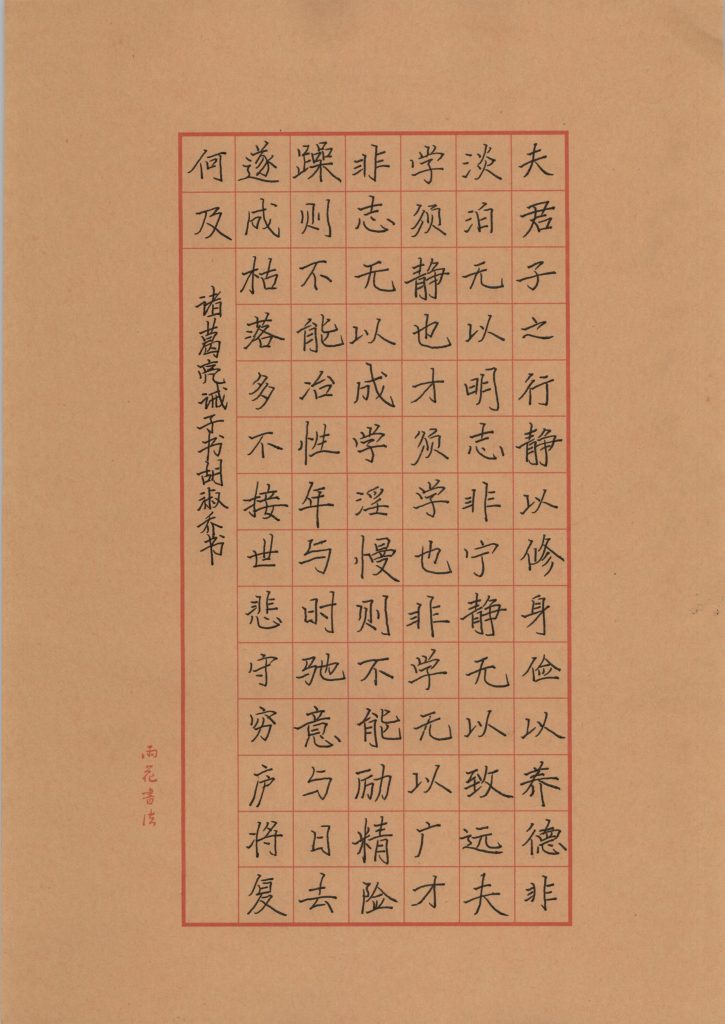 夫君子之行静以修身俭以养德非
淡泊无以明志非宁静无以致远夫
学须静也才须学也非学无以广才
非志无以成学淫慢则不能励精险
躁则不能冶性年与时驰意与日去
遂成枯落多不接世悲守穷庐将复
何及
诸葛亮诫子书胡淑乔书
雨花书法